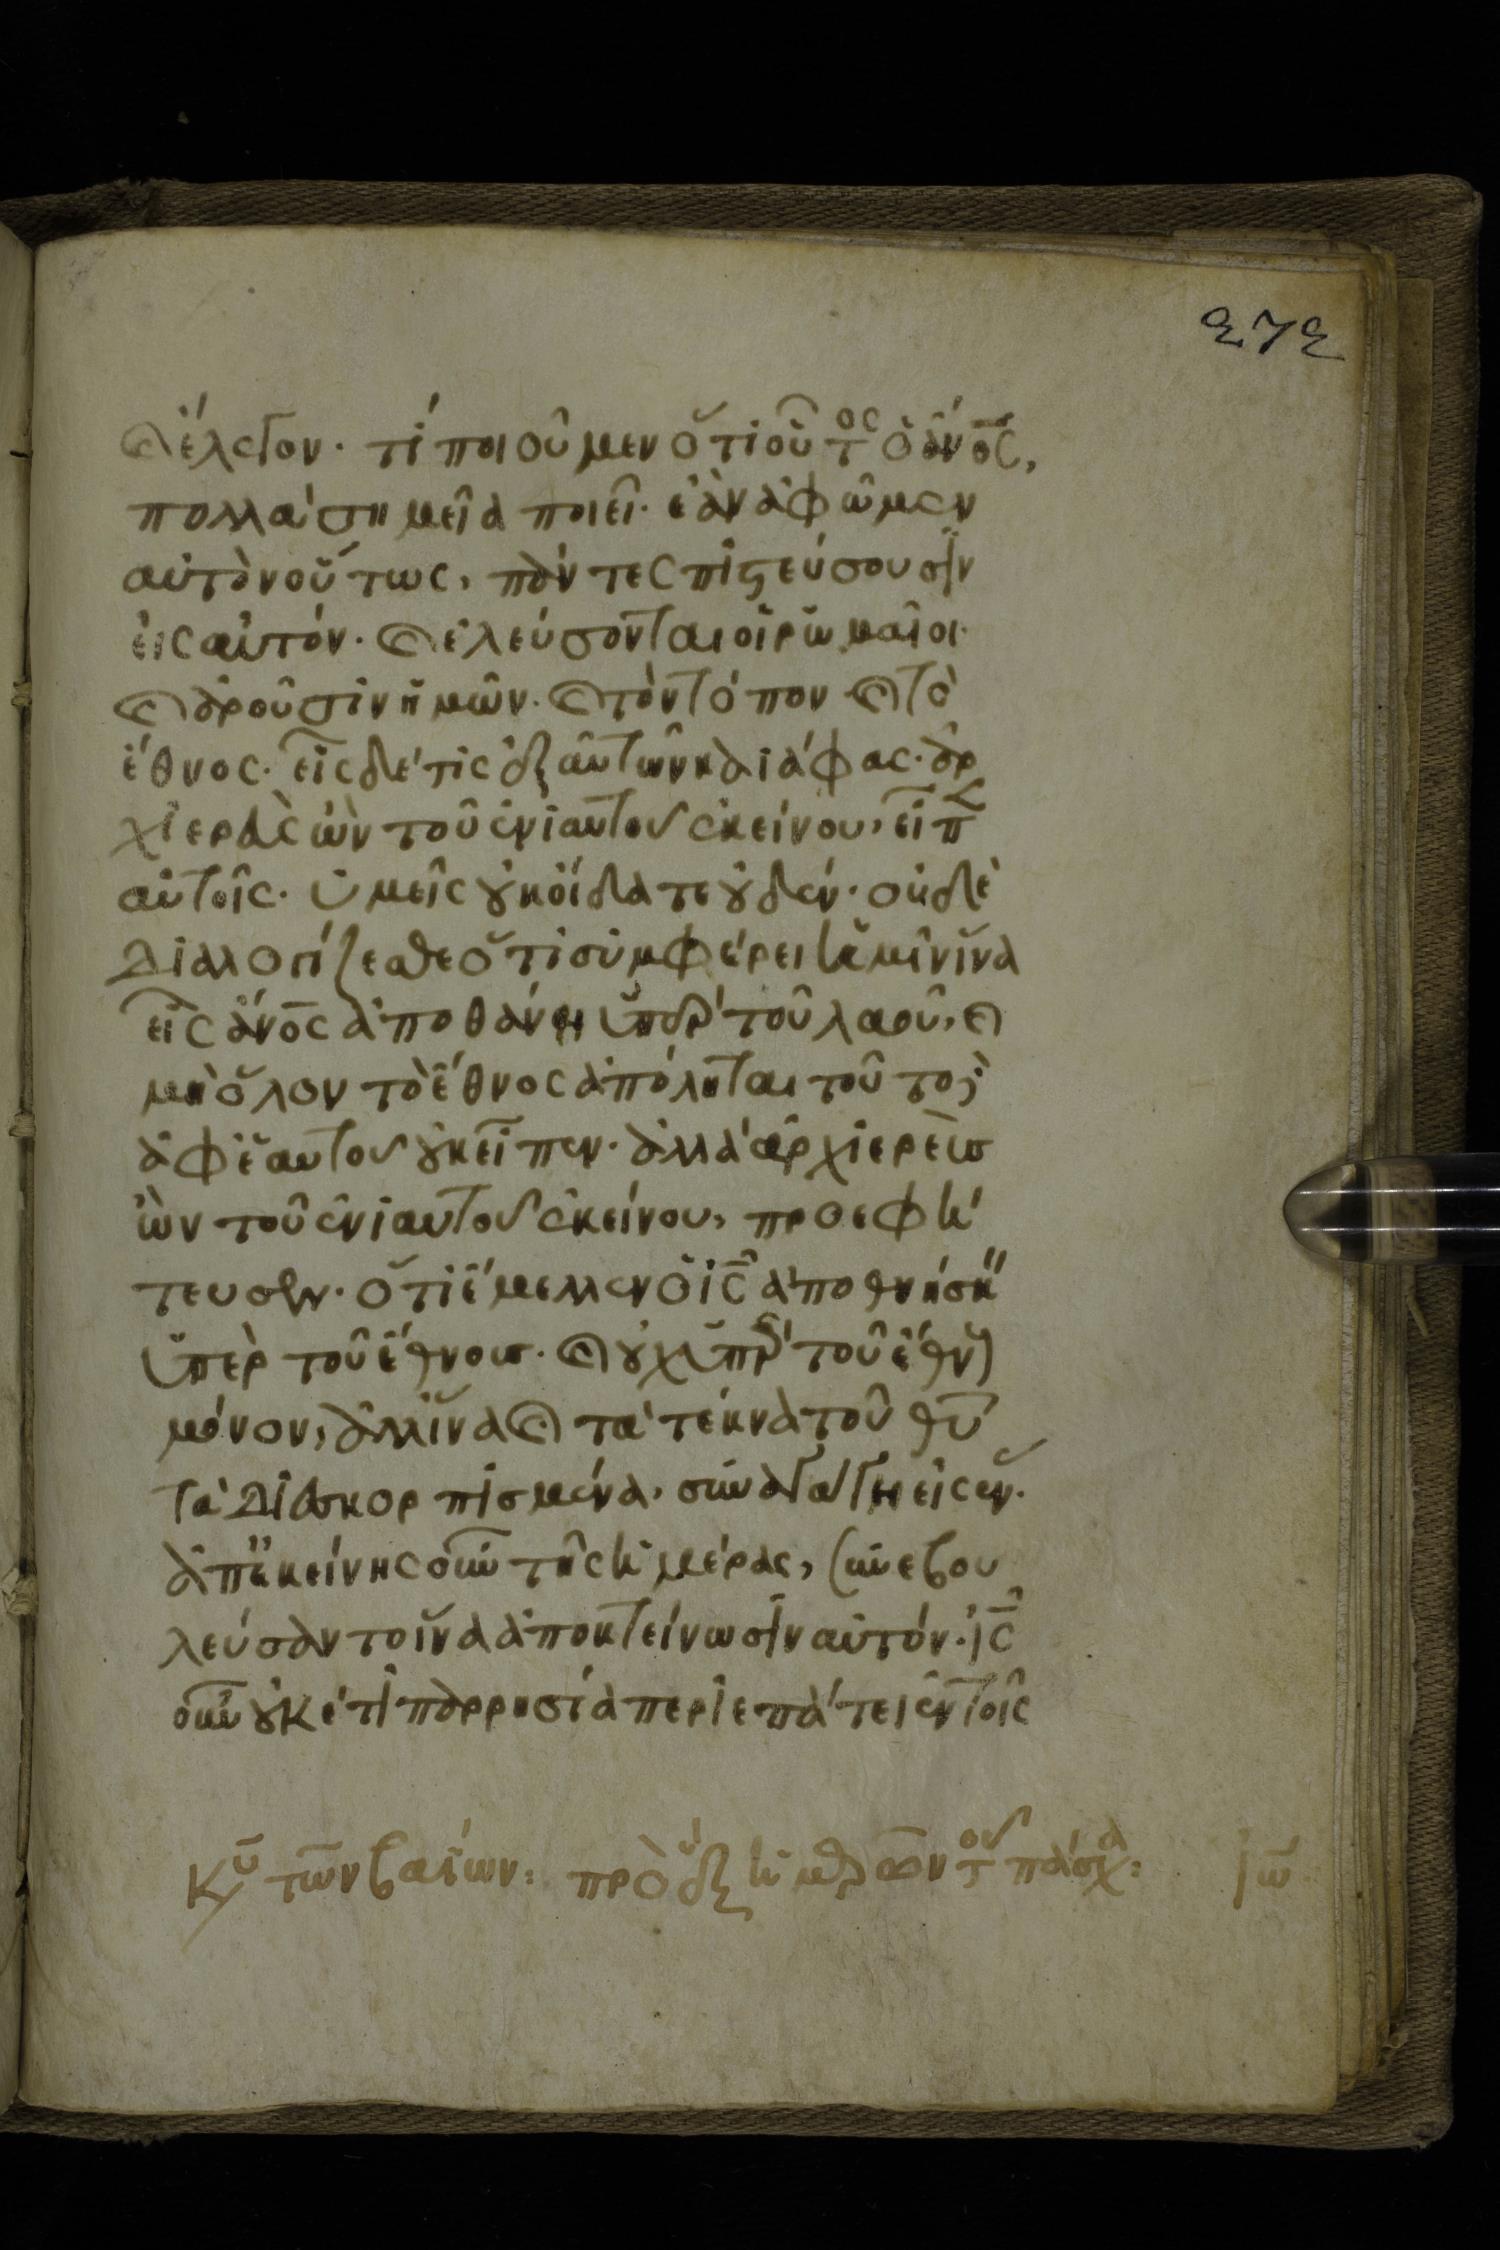 272
καὶ ἔλεγον· τί ποιοῦμεν ὅτι οὗτος ὁ ἄνος,
πολλὰ σημεῖα ποιεῖ· ἐὰν ἀφῶμεν
αὐτὸν οὕτως, πάντες πιστεύσουσιν
εἰς αὐτόν· καὶ ἐλεύσονται οἱ ῥωμαῖοι·
καὶ ἀροῦσιν ἡμῶν· καὶ τὸν τόπον καὶ τὸ
ἔθνος· εἷς δέ τις ἐξ αὐτῶν καϊάφας· ἀρ
χιερεὺς ὢν τοῦ ἐνιαυτοῦ ἐκείνου, εἶπ
αὐτοῖς· ὑμεῖς οὐκ οἴδατε οὐδέν· οὐδὲ
διαλογίζεσθε ὅτι συμφέρει ἡμῖν ἵνα
εἷς ἄνος ἀποθάνη ὑπὲρ τοῦ λαοῦ, καὶ
μὴ ὅλον τὸ ἔθνος ἀπόληται τοῦτο δὲ
ἀφ ἑαυτοῦ οὐκ εἶπεν· ἀλλὰ ἀρχιερεὺς
ὢν τοῦ ἐνιαυτοῦ ἐκείνου, προεφή
τευσεν· ὅτι ἔμελλεν ὁ ις ἀποθνήσκ
ὑπὲρ τοῦ ἔθνους· καὶ οὐχ ὑπὲρ τοῦ ἔθνους
μόνον, ἀλλ ἵνα καὶ τὰ τέκνα τοῦ θυ
τὰ διασκορπισμένα· συναγάγη εἰς ἕν·
ἀπ ἐκείνης οὖν τῆς ἡμέρας, συνεβου
λεύσαντο ἵνα ἀποκτείνωσιν αὐτόν· ις
οὖν οὐκέτι παρρησία περιεπάτει ἐν τοῖς
Κυ τῶν βαΐων: πρὸ ἓξ ἡμερῶν τοῦ πάσχα: ἰω